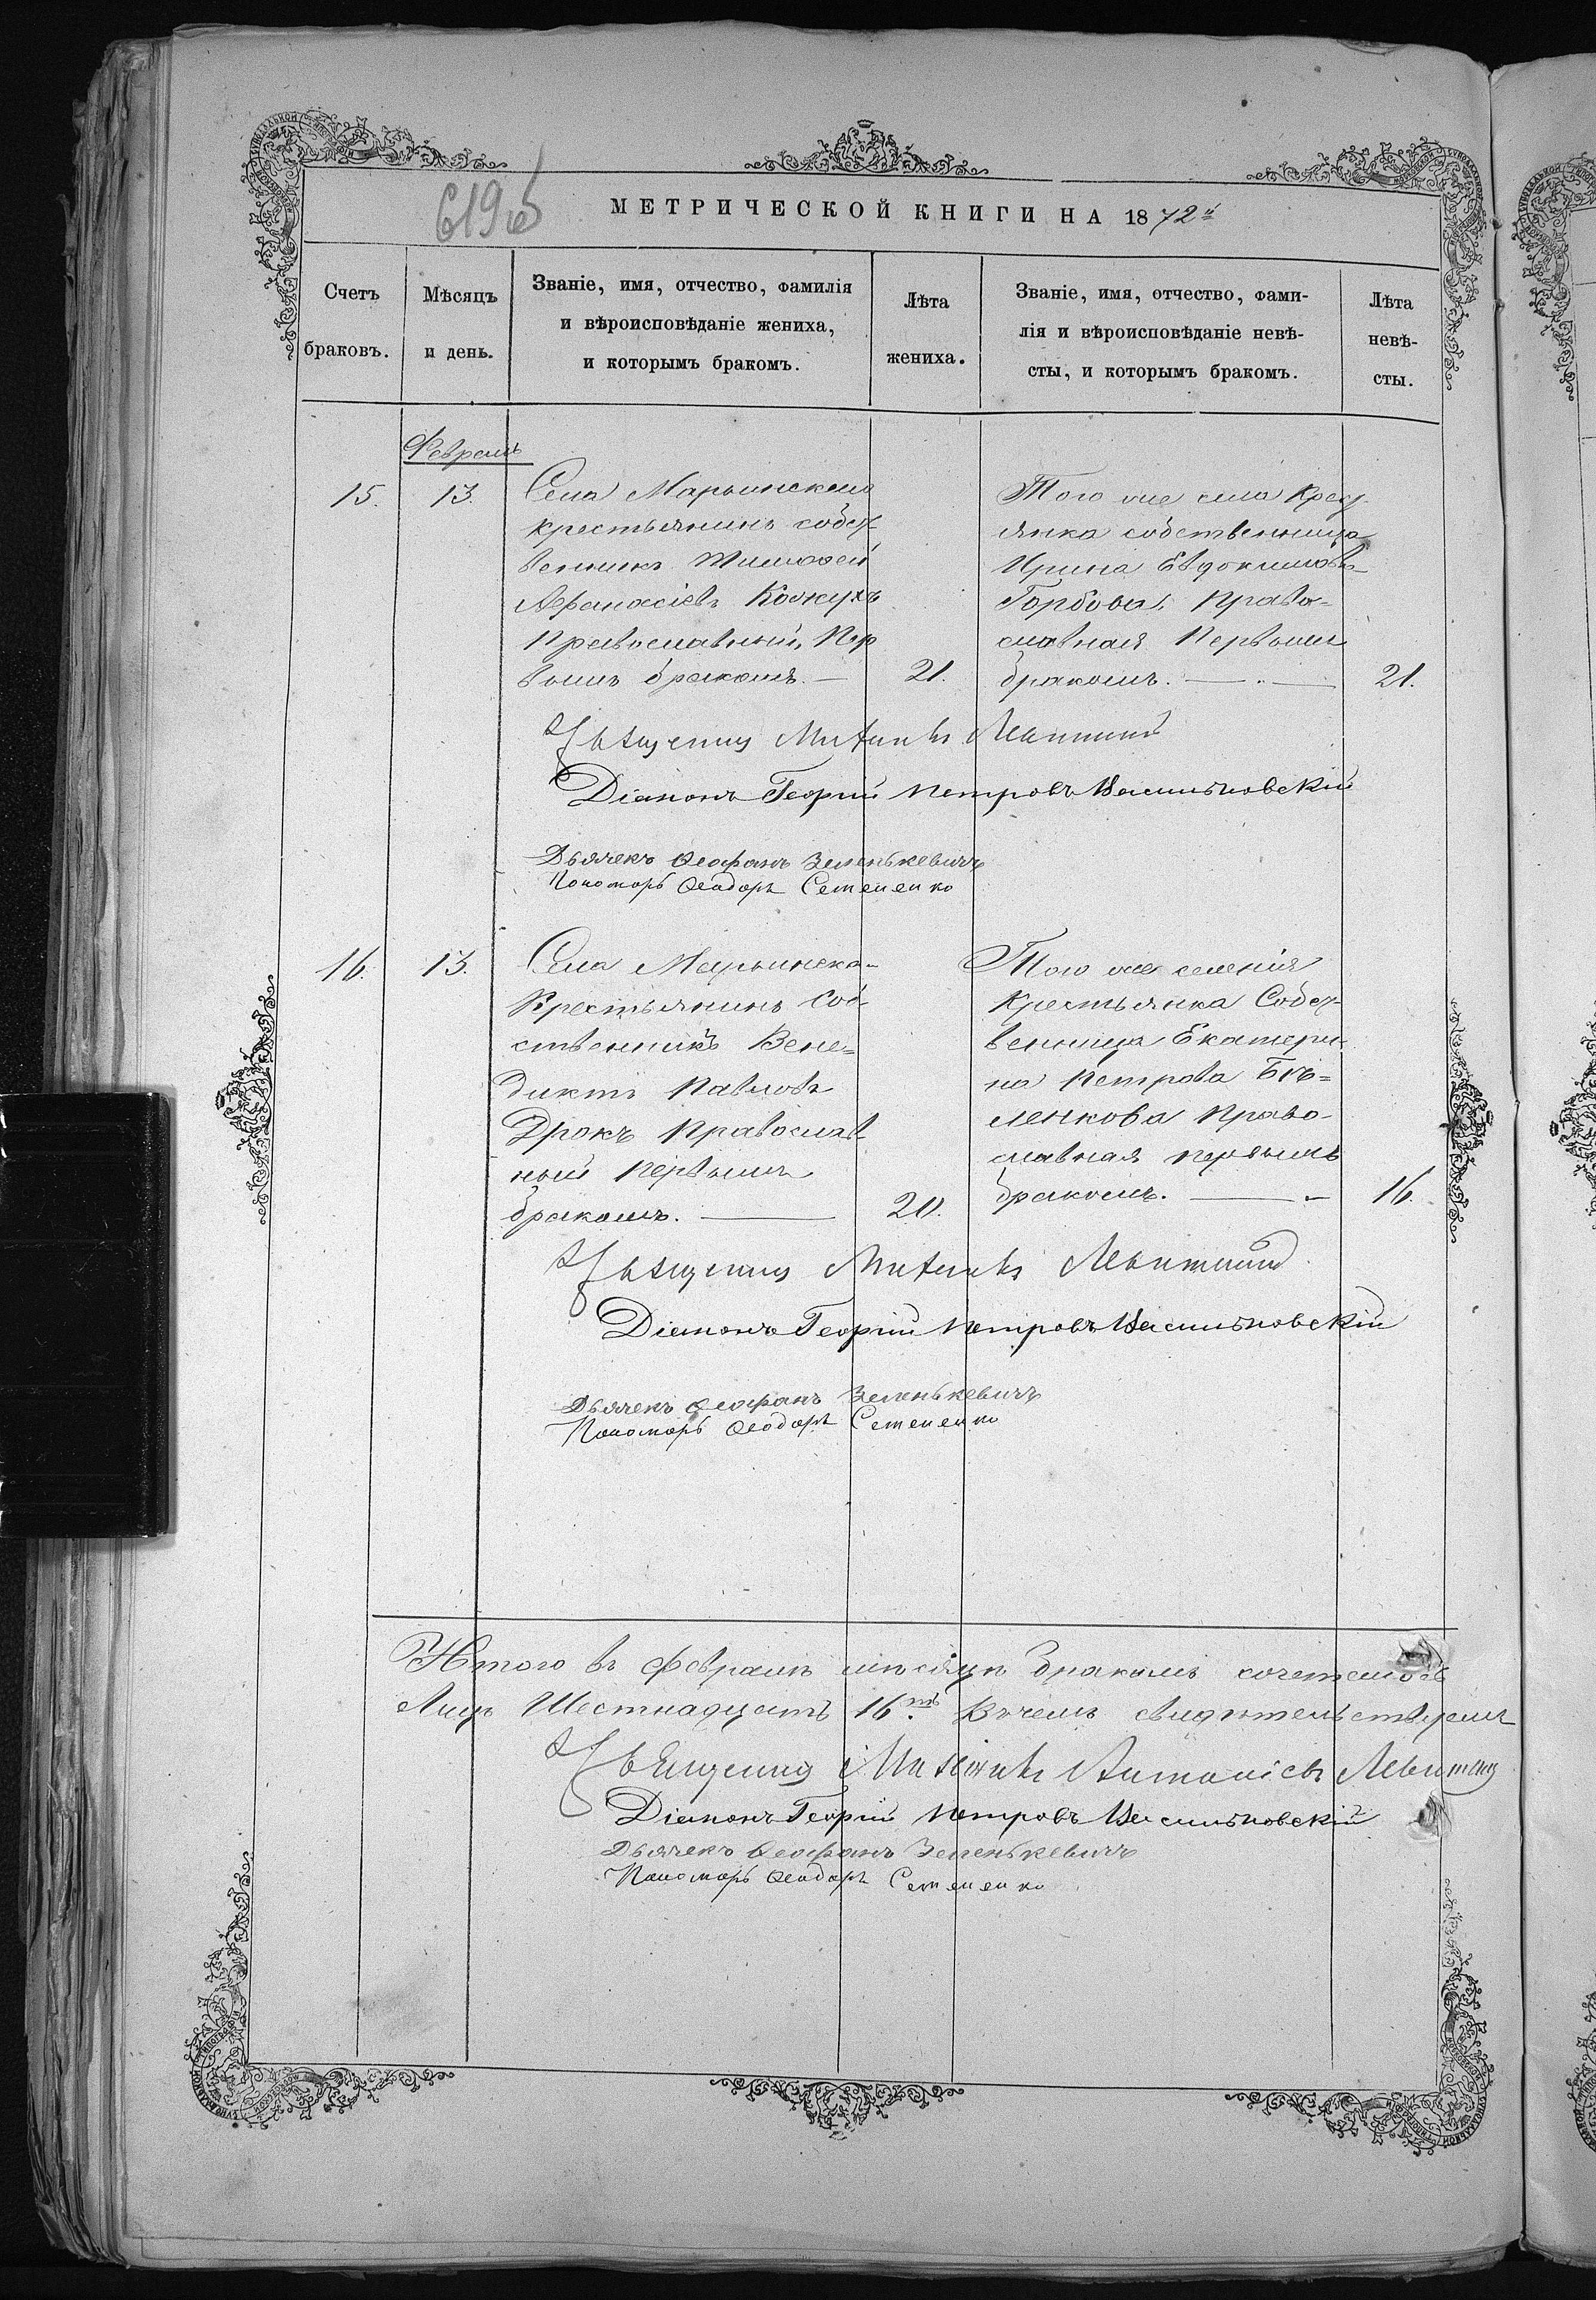 619 об
МЕТРИЧЕСКОЙ КНИГИ НА 1872й
Счетъ браковъ.
Мѣсяцъ и день.
Званіе, имя, отчество, фамилія
и вѣроисповѣданіе жениха,
и которымъ бракомъ.
Лѣта жениха.
Званіе, имя, отчество, фами-
лія и вѣроисповѣданіе невѣ-
сты, и которымъ бракомъ.
Лѣта невѣ-
сты.
Февраль
15. 13.
Села Марьинскаго
крестьянинъ собст
венникъ Тимофей
Афанасіевъ Кожухъ
Православный, Пер
вымъ бракомъ. —
21.
Того же села Крест
янка собственница
Ирина Евдокимова
Горбова, Право-
славная Первымъ
бракомъ. —
21.
Священникъ Митрофанъ Левитскій
Діаконъ Георгій Петровъ Васильковскій
Дьячекъ Феофанъ Зеленькевичъ
Пономарь Феодоръ Семененко
16. 13.
Села Марьинска-
Крестьянинъ Соб-
ственникъ Вене=
диктъ Павловъ
Дрокъ Православ-
ный Первымъ
бракомъ. —
20.
Того же селенія
Крестьянка Собст-
венница Екатери-
на Петрова Бѣ=
ленкова Право-
славная первымъ
бракомъ. —
16.
Священникъ Левитскій
Діаконъ Георгій Петровъ Васильковскій
Дьячекъ Феофанъ Зеленькевичъ
Пономарь Феодоръ Семененко
Итого въ Февралѣ мѣсяцѣ бракомъ сочеталось
Лицъ Шестнадцать 16ть. Въ чемъ свидѣтельствуемъ
Священникъ Левитскій
Діаконъ Георгій Петровъ Васильковскій
Дьячекъ Феофанъ Зеленькевичъ
Пономарь Феодоръ Семененко